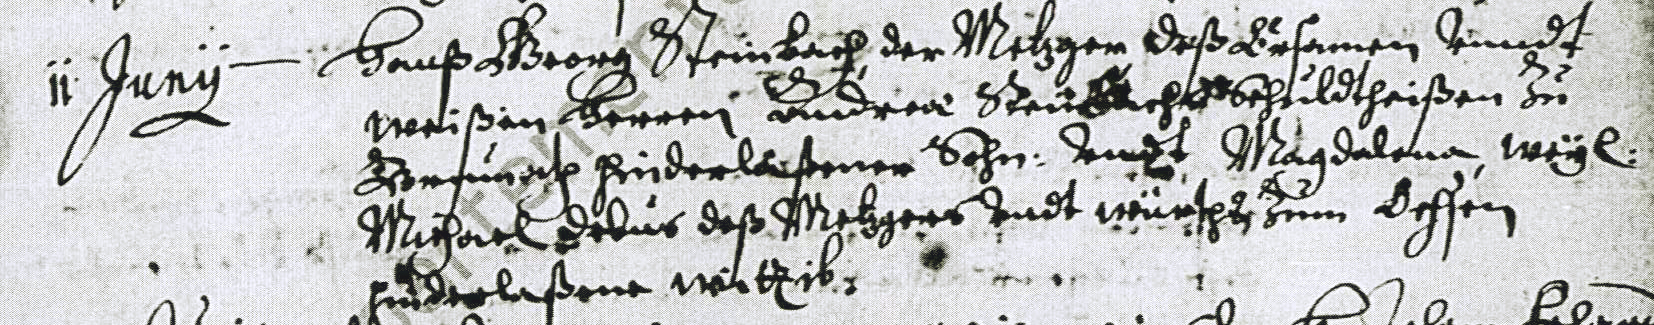 11 Junÿ Hanß Georg Steinbach, der Metzger deß Ersamen vnndt
weißen Herren Andreæ Steinbachs Schuldtheißen zu
hinderlaßener Sohn. vndt Magdalena, weÿl:
Michael Debus deß Metzgers vndt würths zum Ochsen
hinderlaßene wittib.